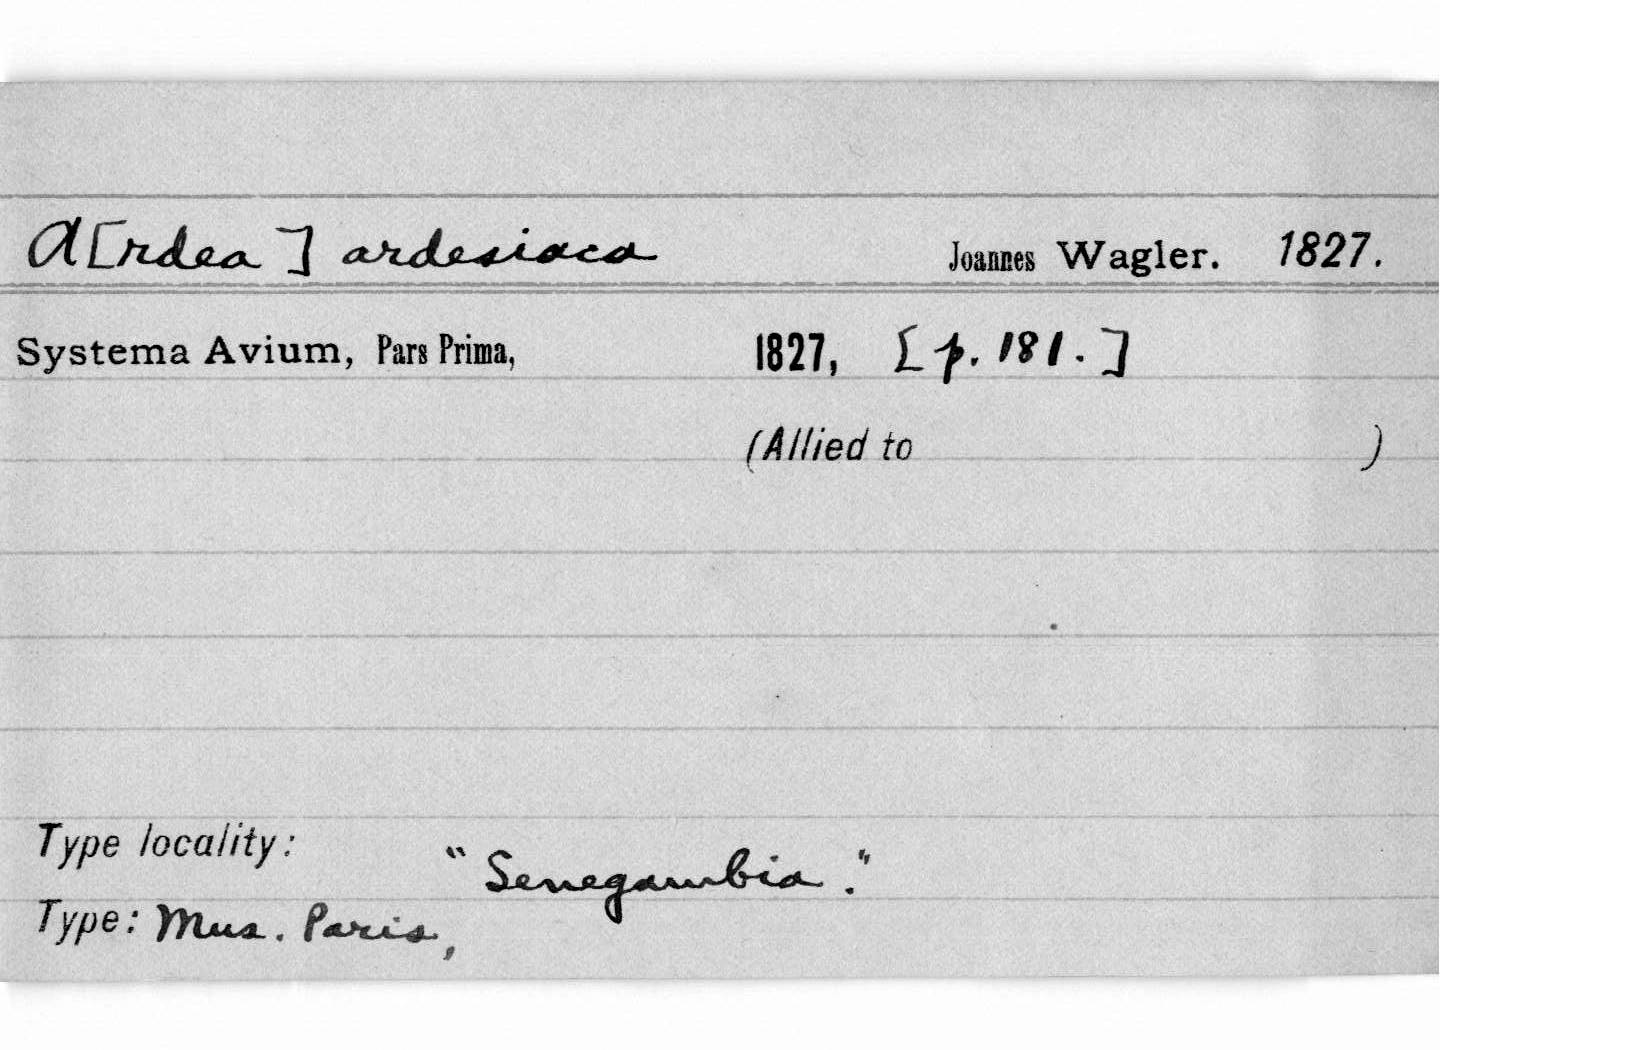 A[rdea] ardesiaca Joannes Wagler. 1827.
Systema Avium, Pars Prima, 1827, [p. 181.]
(Allied to )
Type locality: "Senegambia."
Type: Mus. Paris,